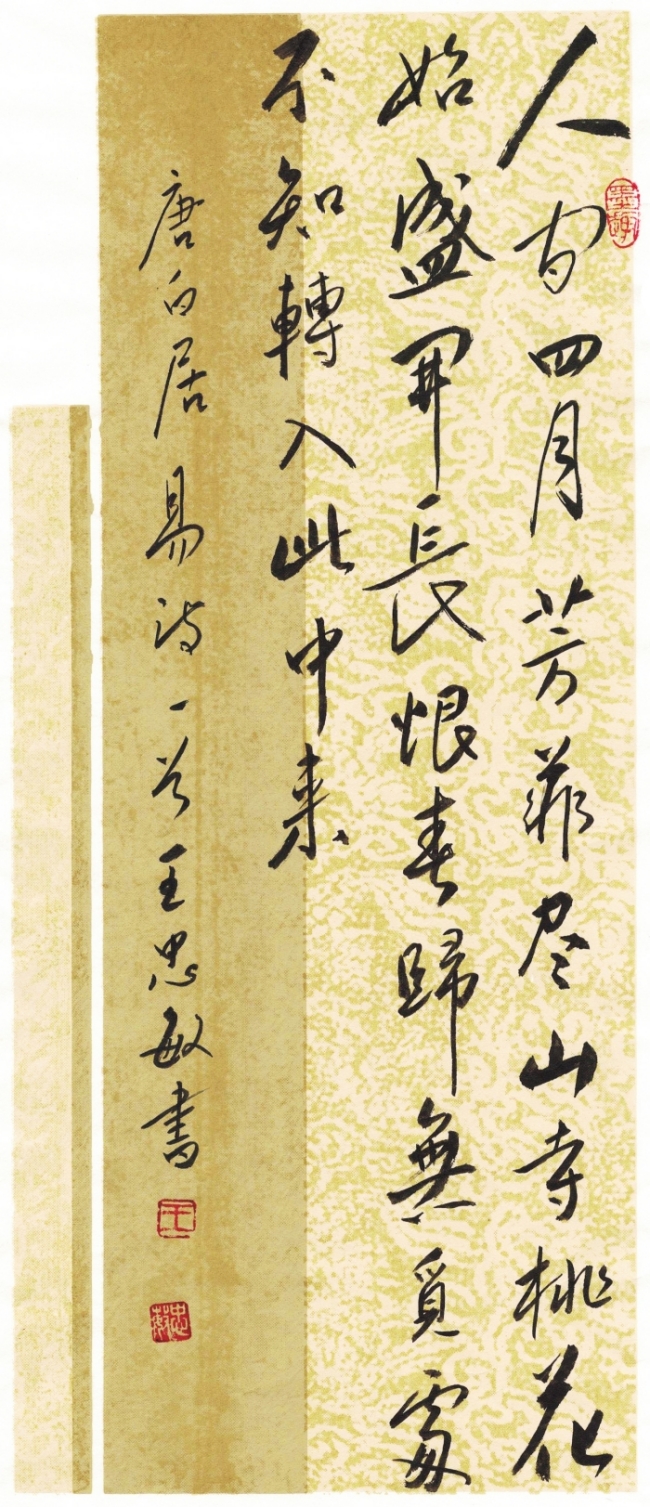 人间四月芳菲尽山寺桃花
始盛开長恨春歸無覓處
不知轉入此中来
唐白居易诗一首王忠敏書
王
忠敏